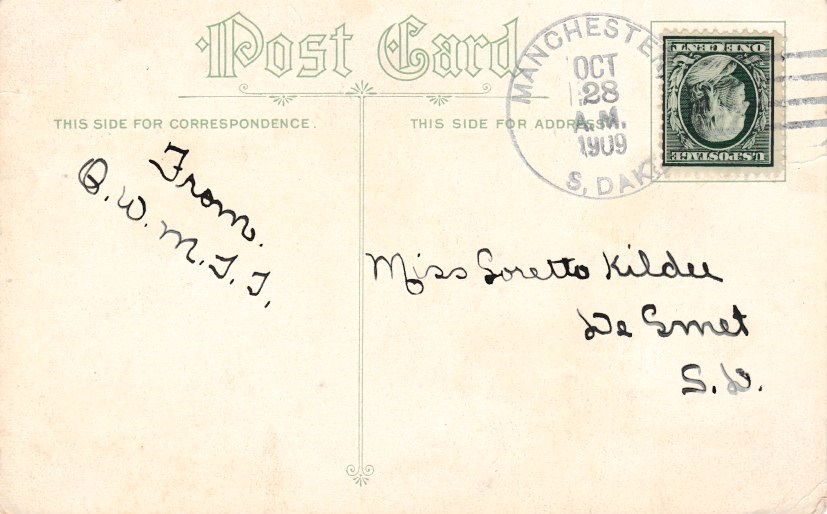 Post Card
THIS SIDE FOR CORRESPONDENCE.
THIS SIDE FOR ADDRESS
MANCHESTER
OCT
28
A.M.
1909
S. DAK.
U.S. POSTAGE
ONE CENT
From.
Q.W.M.T.T.
Miss Loretto Kildee
De Smet
S.D.